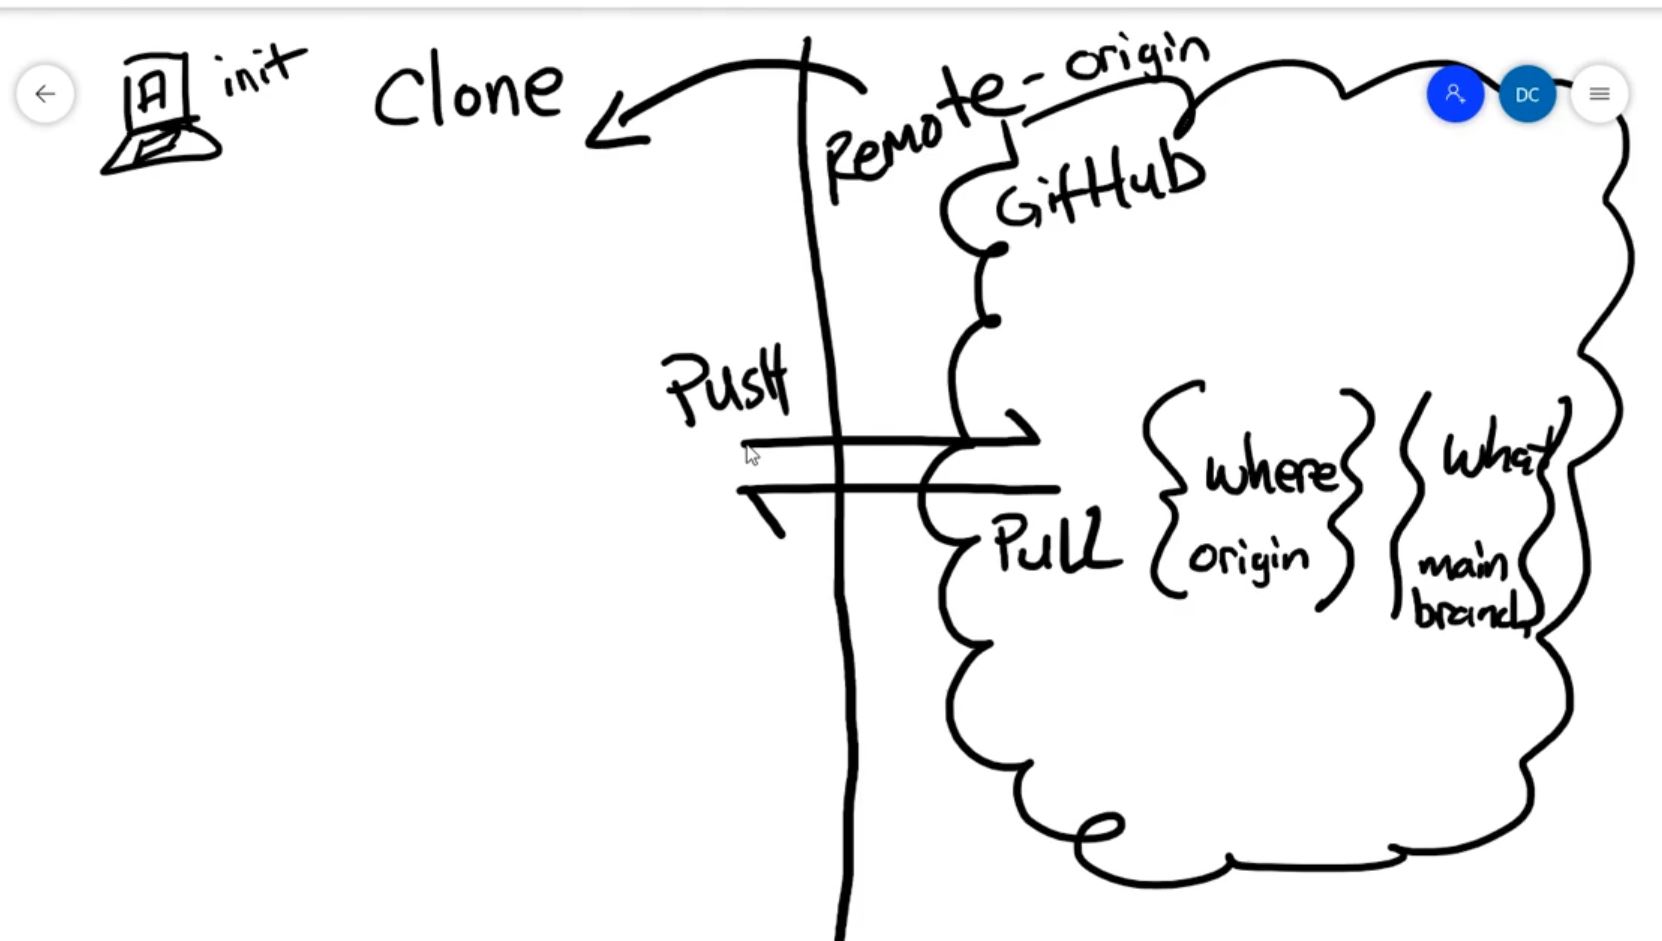 A
init
Clone
Remote - origin
GitHub
DC
Push
Pull
where
origin
what
main
branch